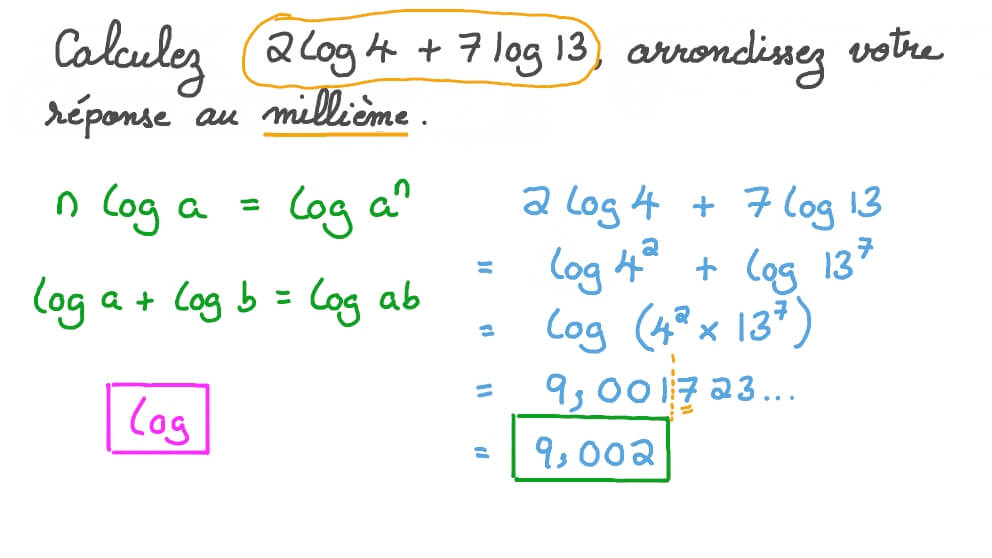 Calculez 2 log 4 + 7 log 13, arrondissez votre
réponse au millième.
n log a = log aⁿ
log a + log b = log ab
log
2 log 4 + 7 log 13
= log 4² + log 13⁷
= log (4² × 13⁷)
= 9,001723...
= 9,002